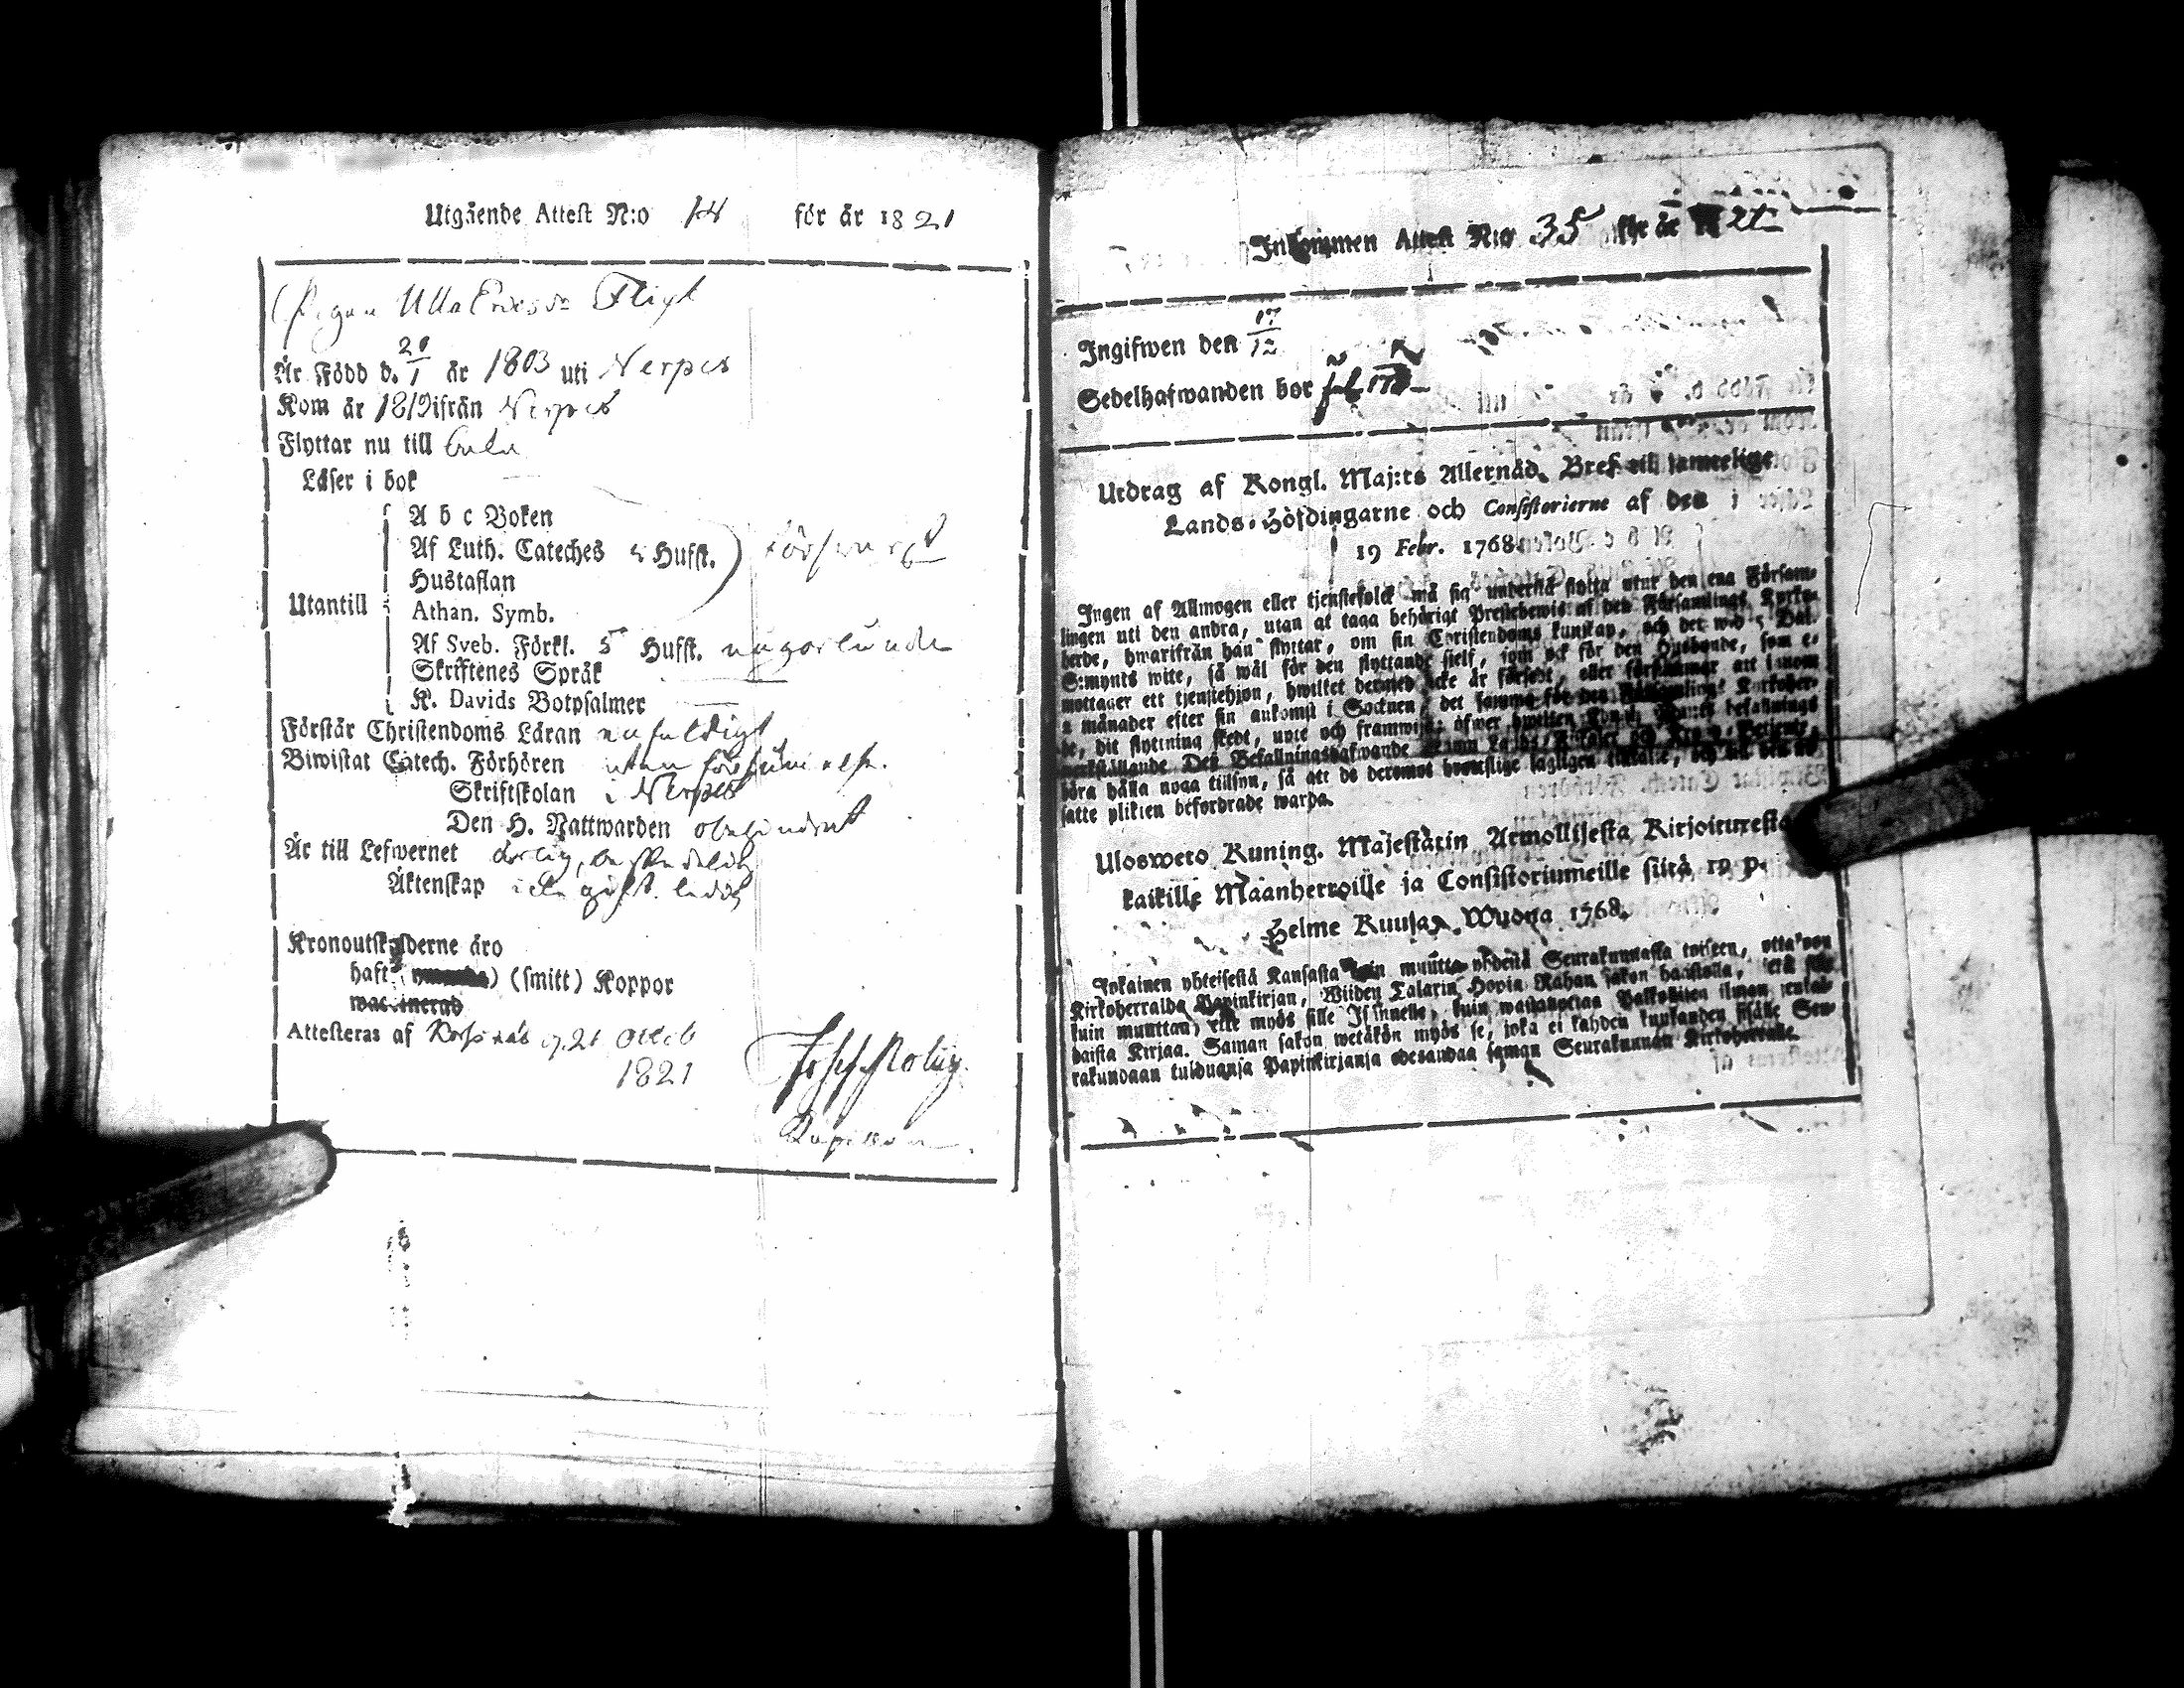 Utgående Attest N:o 14 för år 1821
Pigan Ulla Ersdr Fligt
Är Född d. 20/1 år 1803 uti Nerpes
Kom år 1819 ifrån Nerpes
Flyttar nu till
Läser i bok
A b c Boken
Af Luth. Cateches 5 Hufst. försvarl
Hustaflan
Utantill
Athan. Symb.
Af Sveb. Förkl. 5 Hufst. någorlunda
Skriftenes Språk
K. Davids Botpsalmer
Förstår Christendoms Läran enfaldigt
Biwistat Catech. Förhören utan försummelse.
Skriftskolan i Nerpes
Den H. Nattwarden obehindrat
Är till Lefwernet ärlig, beskedelig
Äktenskap icke gift. ledig
Kronoutskylderne äro
haft (smitt) Koppor
waccinerad
Attesteras af Korsnäs d. 21 Octob
1821
Kapellan
Inkommen Attest N:o 35 för år 21
Ingifwen den 17/12
Sedelhafwanden bor
Utdrag af Kongl. Maj:ts Allernåd. Bref till samtelige
Lands-Höfdingarne och Consistorierne af den
19 Febr. 1768
Ingen af Allmogen eller tjenstefolck må sig understå flytta utur den ena Församlingen
lingen uti den andra, utan at taga behörigt Prestebewis af den Församlings Kyrko-
herde, hwarifrån han flyttar, om sin Christendoms kunskap, och det wid 5 Dal.
S:mynts wite, så wäl för den flyttande sielf, som ock för den Husbonde, som e-
mottager ett tjenstehjon, hwilket dermed icke är försedt, eller försummar att inom
2 månader efter sin ankomst i Socknen, det samma för den Församlings Kyrkoher-
de, dit flyttning skedt, upte och framwisa; öfwer hwilken Kongl. Maj:ts befallnings
werkställande Dess Befallningshafwande samt Lands, Fiskaler och Krono-Betjente,
böra hålla noga tillsyn, så att de deremot brottslige lagligen tiltalte, och til den ut-
satte plikten befordrade warda.
Ulosweto Kuning. Majestätin Armollisesta Kirjoituxesta
kaikille Maanherroille ja Consistoriumeille siitä 19 p.
Helme Kuusa, Wuona 1768.
Jokainen yhteisestä Kansasta kuin muutta yhdestä Seurakunnasta toiseen, ottakoon
Kirkoherralda Papinkirjan, Wiiden Talarin Hopia Rahan sakon haastolla, sekä sille
kuin muuttaa, että myös sille Isännelle, kuin wastanottaa Palkollisen ilman senkal-
daista Kirjaa. Saman sakon wetäkön myös se, joka ei kahden kuukauden sisälle Seu-
rakundaan tulduansa Papinkirjansa edesandaa saman Seurakunnan Kirkoherralle.